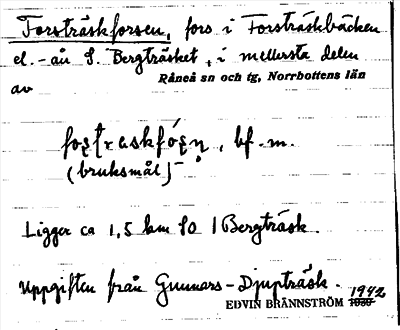 Forsträskforsen, fors i Forsträskbäcken
el. -ån S. Bergträsket, i mellersta delen
av Råneå sn och tg, Norrbottens län
bf. m.
(bruksmål)
Ligger ca 1,5 km SO Bergträsk.
Uppgiften från Gunnars-Djupträsk.
EDVIN BRÄNNSTRÖM 1942